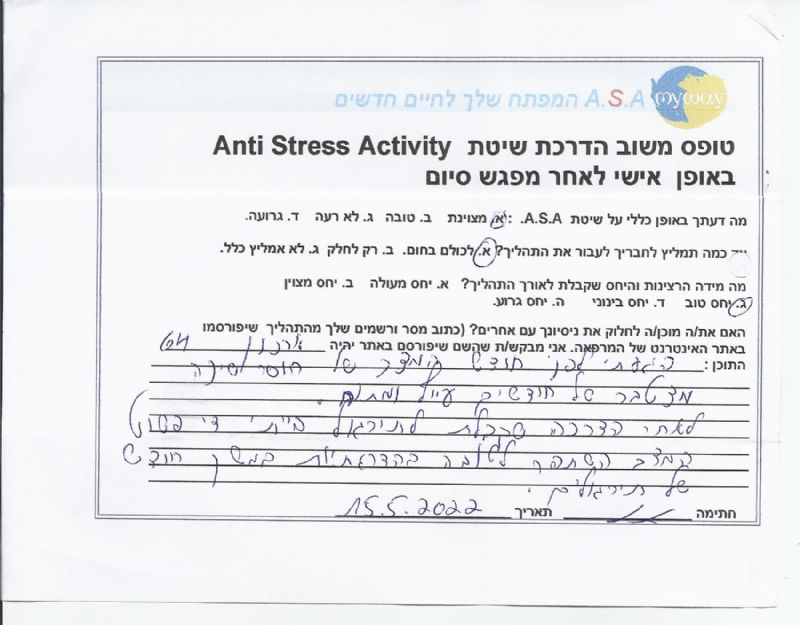 myway
A.S.A המפתח שלך לחיים חדשים
טופס משוב הדרכת שיטת Anti Stress Activity
באופן אישי לאחר מפגש סיום
מה דעתך באופן כללי על שיטת A.S.A. : א. מצוינת ב. טובה ג. לא רעה ד. גרועה.
עד כמה תמליץ לחבריך לעבור את התהליך? א. לכולם בחום. ב. רק לחלק ג. לא אמליץ כלל.
מה מידה הרצינות והיחס שקבלת לאורך התהליך? א. יחס מעולה ב. יחס מצוין
ג. יחס טוב ד. יחס בינוני ה. יחס גרוע.
האם את/ה מוכן/ה לחלוק את ניסיונך עם אחרים? (כתוב מסר ורשמים שלך מהתהליך שיפורסמו
באתר האינטרנט של המרפאה. אני מבקש/ת שהשם שיפורסם באתר יהיה ארנון
התוכן: הגעתי לפני חודש במצב של חוסר שינה
מצטבר של חודשים עייף ומתוח.
לאחר הדרכה שקבלתי לתירגול הייתי די פשוט
המצב השתפר לטובה בהדרגתיות במשך חודש
של תירגולים.
חתימה תאריך 15.5.2022